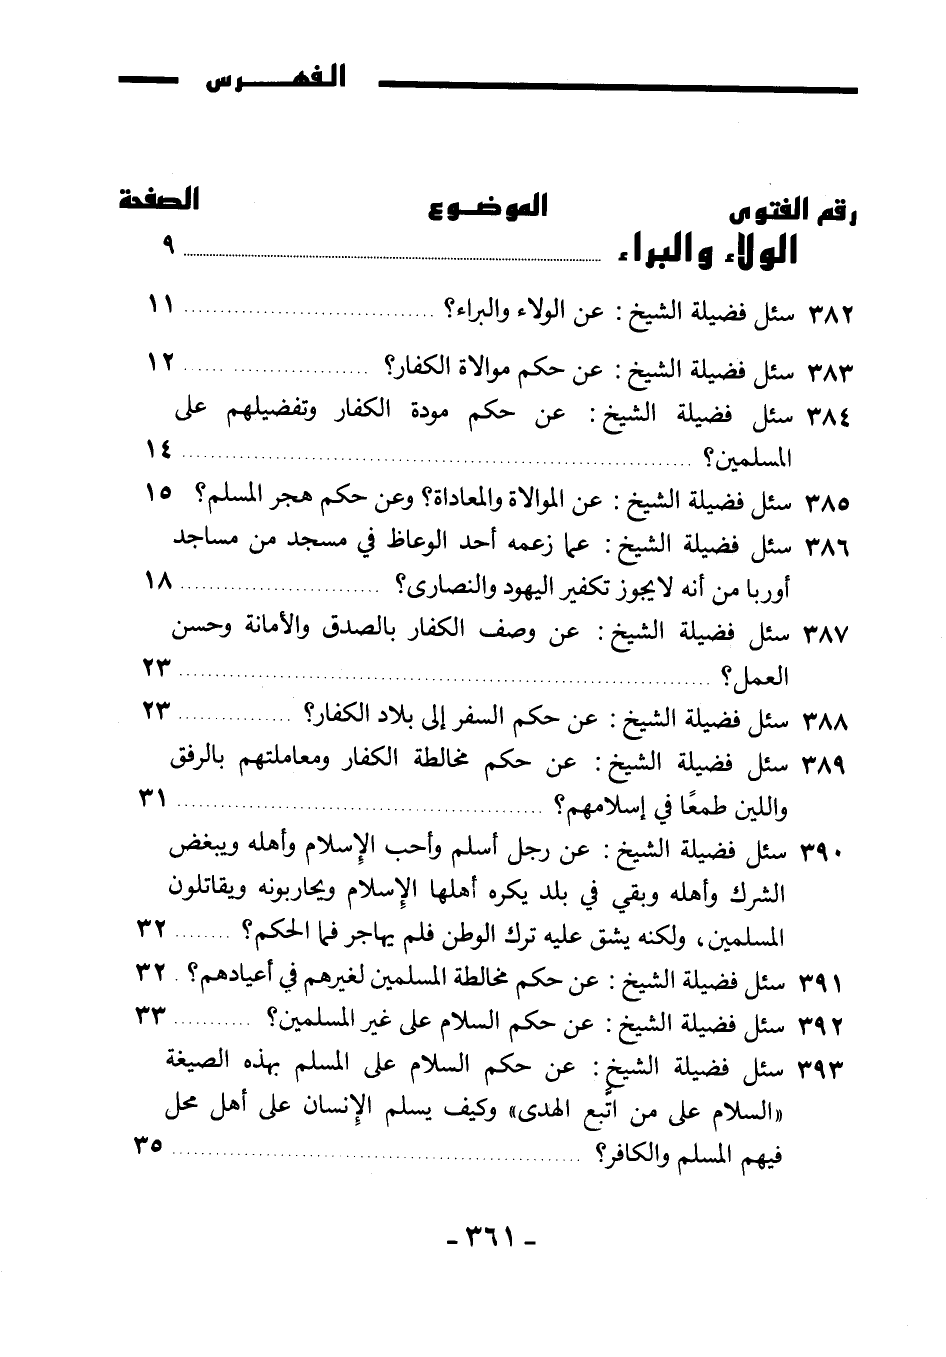 الفهـــرس
رقم الفتوى الموضوع الصفحة
الولاء والبراء ........ ٩
٣٨٢ سئل فضيلة الشيخ: عن الولاء والبراء؟ ........ ١١
٣٨٣ سئل فضيلة الشيخ: عن حكم موالاة الكفار؟ ........ ١٢
٣٨٤ سئل فضيلة الشيخ: عن حكم مودة الكفار وتفضيلهم على
المسلمين؟ ........ ١٤
٣٨٥ سئل فضيلة الشيخ: عن الموالاة والمعاداة؟ وعن حكم هجر المسلم؟ ١٥
٣٨٦ سئل فضيلة الشيخ: عما زعمه أحد الوعاظ في مسجد من مساجد
أوربا من أنه لايجوز تكفير اليهود والنصارى؟ ........ ١٨
٣٨٧ سئل فضيلة الشيخ: عن وصف الكفار بالصدق والأمانة وحسن
العمل؟ ........ ٢٣
٣٨٨ سئل فضيلة الشيخ: عن حكم السفر إلى بلاد الكفار؟ ........ ٢٣
٣٨٩ سئل فضيلة الشيخ: عن حكم مخالطة الكفار ومعاملتهم بالرفق
واللين طمعًا في إسلامهم؟ ........ ٣١
٣٩٠ سئل فضيلة الشيخ: عن رجل أسلم وأحب الإسلام وأهله ويبغض
الشرك وأهله وبقي في بلد يكره أهلها الإسلام ويحاربونه ويقاتلون
المسلمين، ولكنه يشق عليه ترك الوطن فلم يهاجر فما الحكم؟ ........ ٣٢
٣٩١ سئل فضيلة الشيخ: عن حكم مخالطة المسلمين لغيرهم في أعيادهم؟ . ٣٢
٣٩٢ سئل فضيلة الشيخ: عن حكم السلام على غير المسلمين؟ ........ ٣٣
٣٩٣ سئل فضيلة الشيخ: عن حكم السلام على المسلم بهذه الصيغة
«السلام على من اتَّبع الهدى» وكيف يسلم الإنسان على أهل محل
فيهم المسلم والكافر؟ ........ ٣٥
- ٣٦١ -